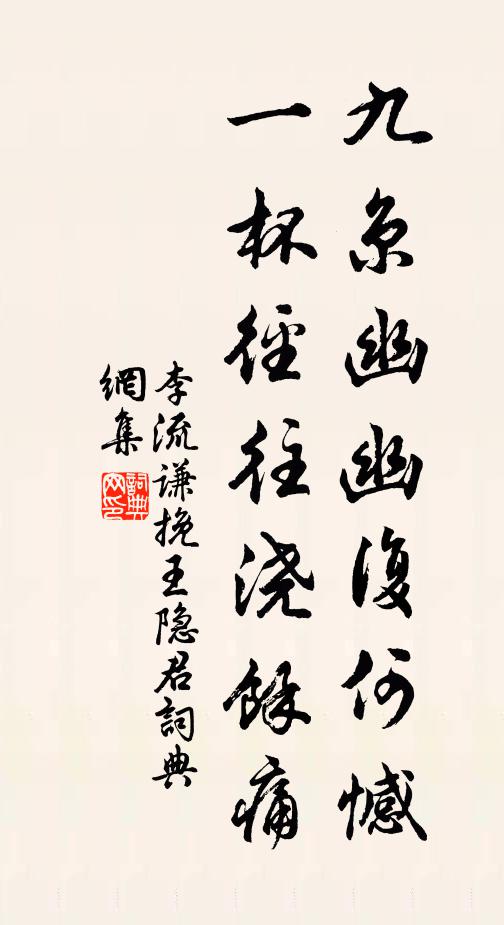 九京幽幽復何憾
一杯徑往浇餘痛
李流谦挽王隐君詞典
網集
詞典
网印